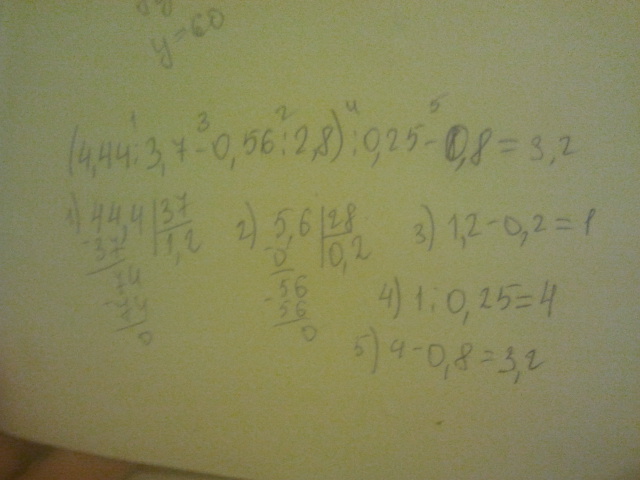 y=60
1 3 2 4 5
(4,44:3,7-0,56:2,8):0,25-0,8=3,2
1) 44,4|37 2) 5,6|28 3) 1,2-0,2=1
-37 |1,2 -0 |0,2
74 -56 4) 1:0,25=4
-74 56
0 0
5) 4-0,8=3,2